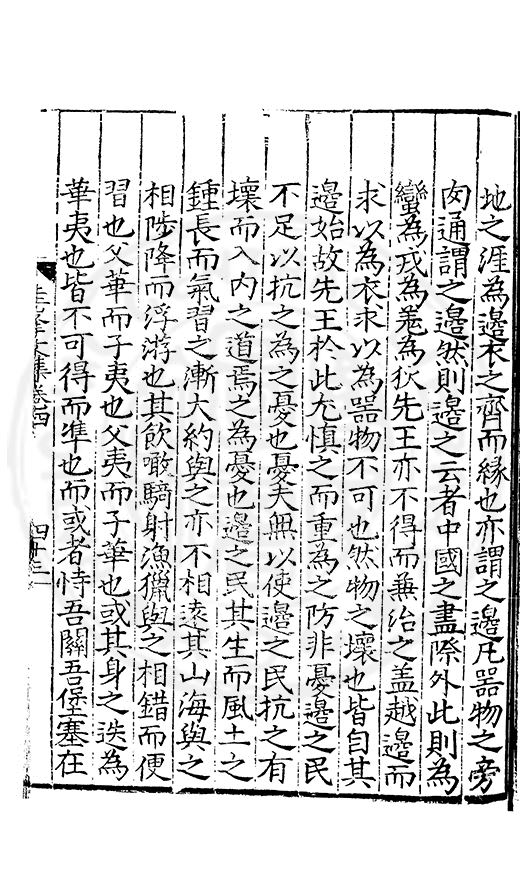 地之涯為邊衣之齊而緣也亦謂之邊凡器物之旁
匈通謂之邊然則邊之云者中國之盡際外此則為
蠻為戎為羗為狄先王亦不得而兼治之盖越邊而
求以為衣求以為器物不可也然物之壞也皆自其
邊始故先王於此尤慎之而重為之防非憂邊之民
不足以抗之為之憂也憂夫無以使邊之民抗之有
壞而入內之道焉之為憂也邊之民其生而風土之
鍾長而氣習之漸大約與之亦不相遠其山海與之
相陟降而浮游也其飲噉騎射漁獵與之相錯而便
習也父華而子夷也父夷而子華也或其身之迭為
華夷也皆不可得而準也而或者恃吾關吾堡塞在
文集卷四